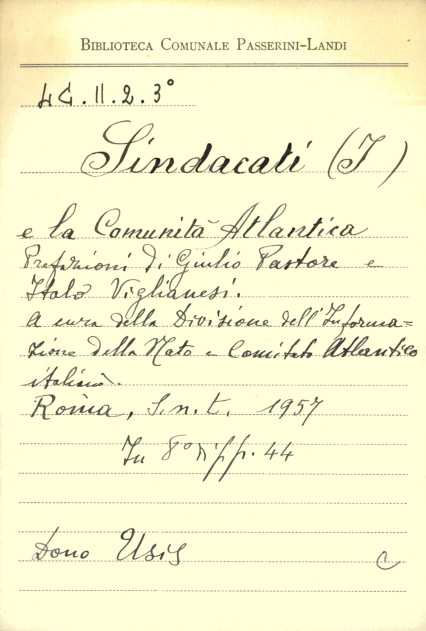 BIBLIOTECA COMUNALE PASSERINI-LANDI
4C.II.2.3°
Sindacati (I)
e la Comunità Atlantica
Prefazioni di Giulio Pastore e
Italo Viglianesi.
A cura della Divisione dell'Informa=
zione della Nato e Comitato Atlantico
italiano.
Roma, S.n.t. 1957
In 8° di pp. 44
Dono Usis
C